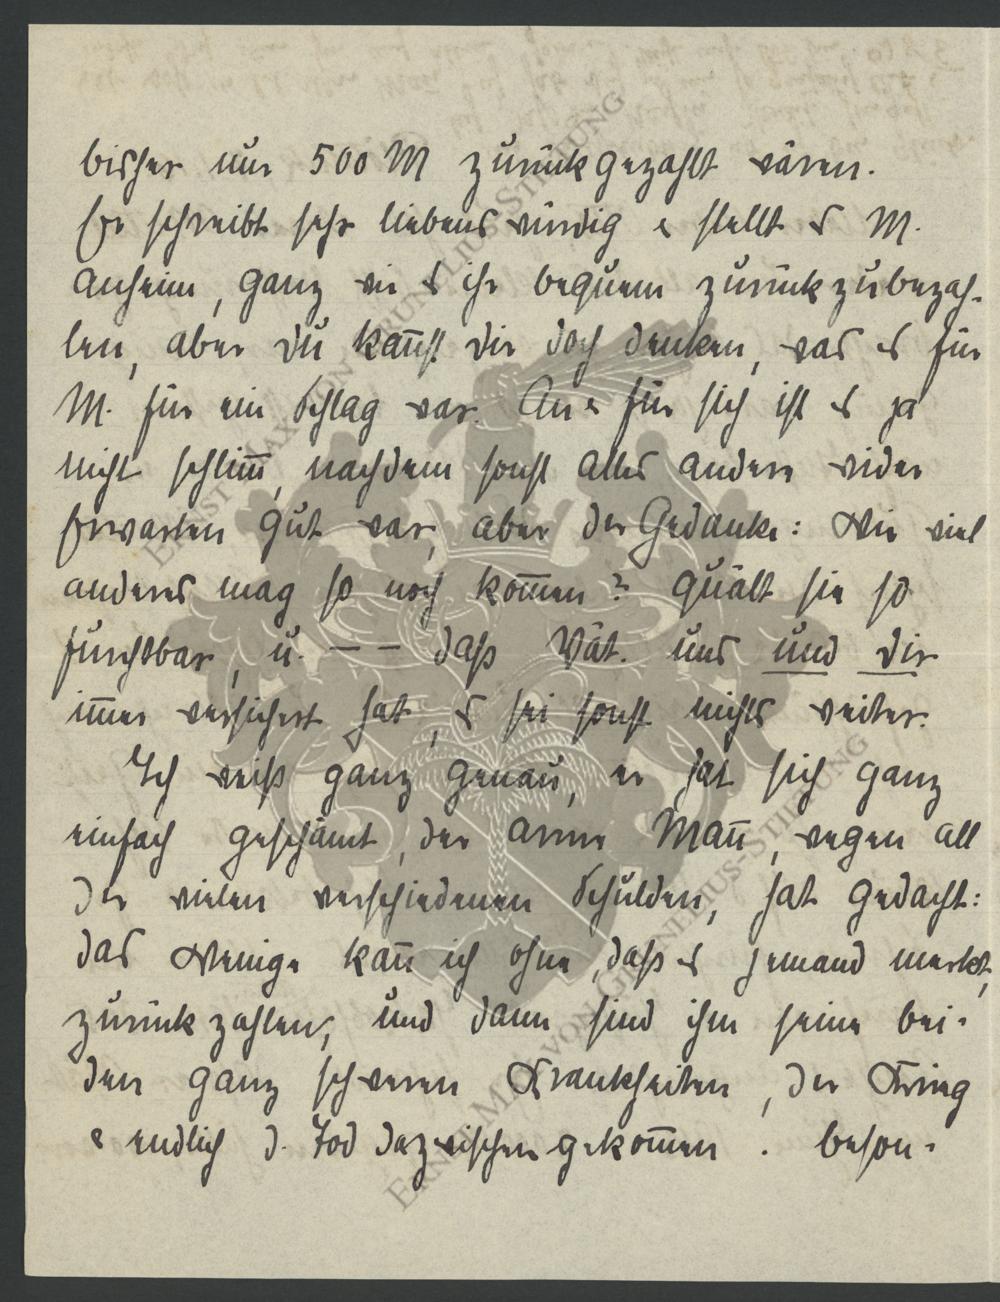 bisher nur 500 M zurückgezahlt wären.
Er schreibt sehr liebenswürdig & stellt es M.
anheim, ganz wie es ihr bequem zurückzubezah-
len, aber du kan̅st dir doch denken, was es für
M. für ein Schlag war. An & für sich ist es ja
nicht schlim̅, nachdem sonst alles andere wider
Erwarten gut war, aber der Gedanke: Wie viel
anderes mag so noch kom̅en? quält sie so
furchtbar, u. — — daß Vät. uns und dir
im̅er versichert hat, es sei sonst nichts weiter.
Ich weiß ganz genau, er hat sich ganz
einfach geschämt, der arme Man̅, wegen all
der vielen verschiedenen Schulden, hat gedacht:
das Wenige kan̅ ich ohne, daß es jemand merkt,
zurückzahlen, und dann sind ihm seine bei-
den ganz schweren Krankheiten, der Krieg
& endlich d. Tod dazwischen gekom̅en. beson-
ERNST MAX VON GRUNELIUS-STIFTUNG
ERNST MAX VON GRUNELIUS-STIFTUNG